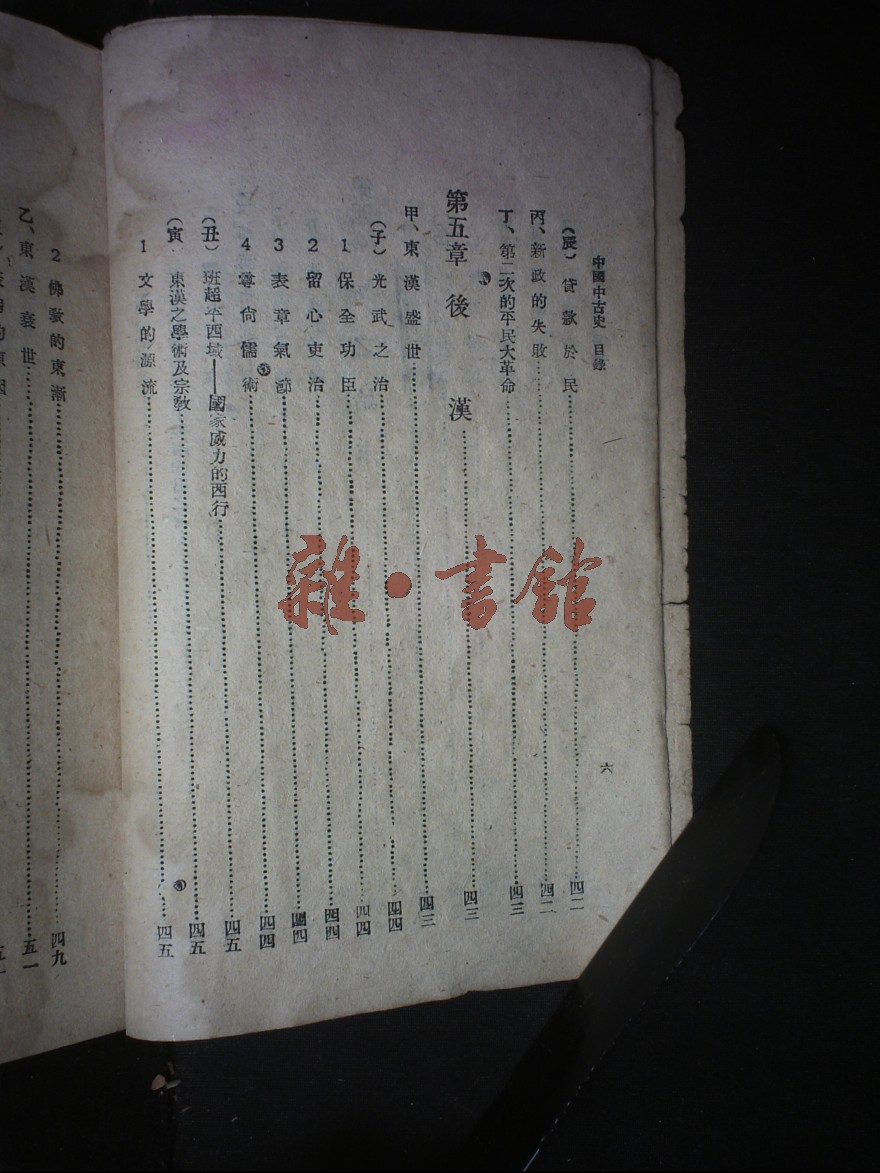 中國中古史 目錄
六
(辰)貸款於民……四二
丙、新政的失敗……四二
丁、第二次的平民大革命……四三
第五章 後漢……四三
甲、東漢盛世……四三
(子)光武之治……四四
1 保全功臣……四四
2 留心吏治……四四
3 表章氣節……四四
4 尊尙儒術……四四
(丑)班超平西域——國家威力的西行……四五
(寅)東漢之學術及宗教……四五
1 文學的源流……四五
2 佛教的東漸……四九
乙、東漢衰世……五一
雜·書館